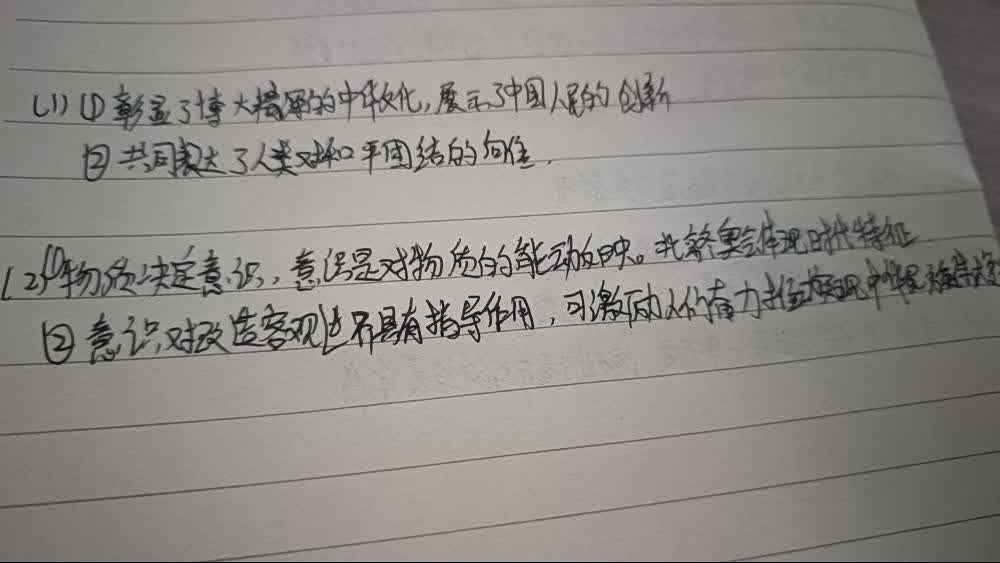 (1) ① 彰显了博大精深的中华文化,展示了中国人民的创新
② 共同表达了人类对和平团结的向往.
(2) ① 物质决定意识,意识是对物质的的能动的反映。北京冬奥会体现时代特征
② 意识对改造客观世界具有指导作用,可激励人们奋力推动实现中华民族伟大